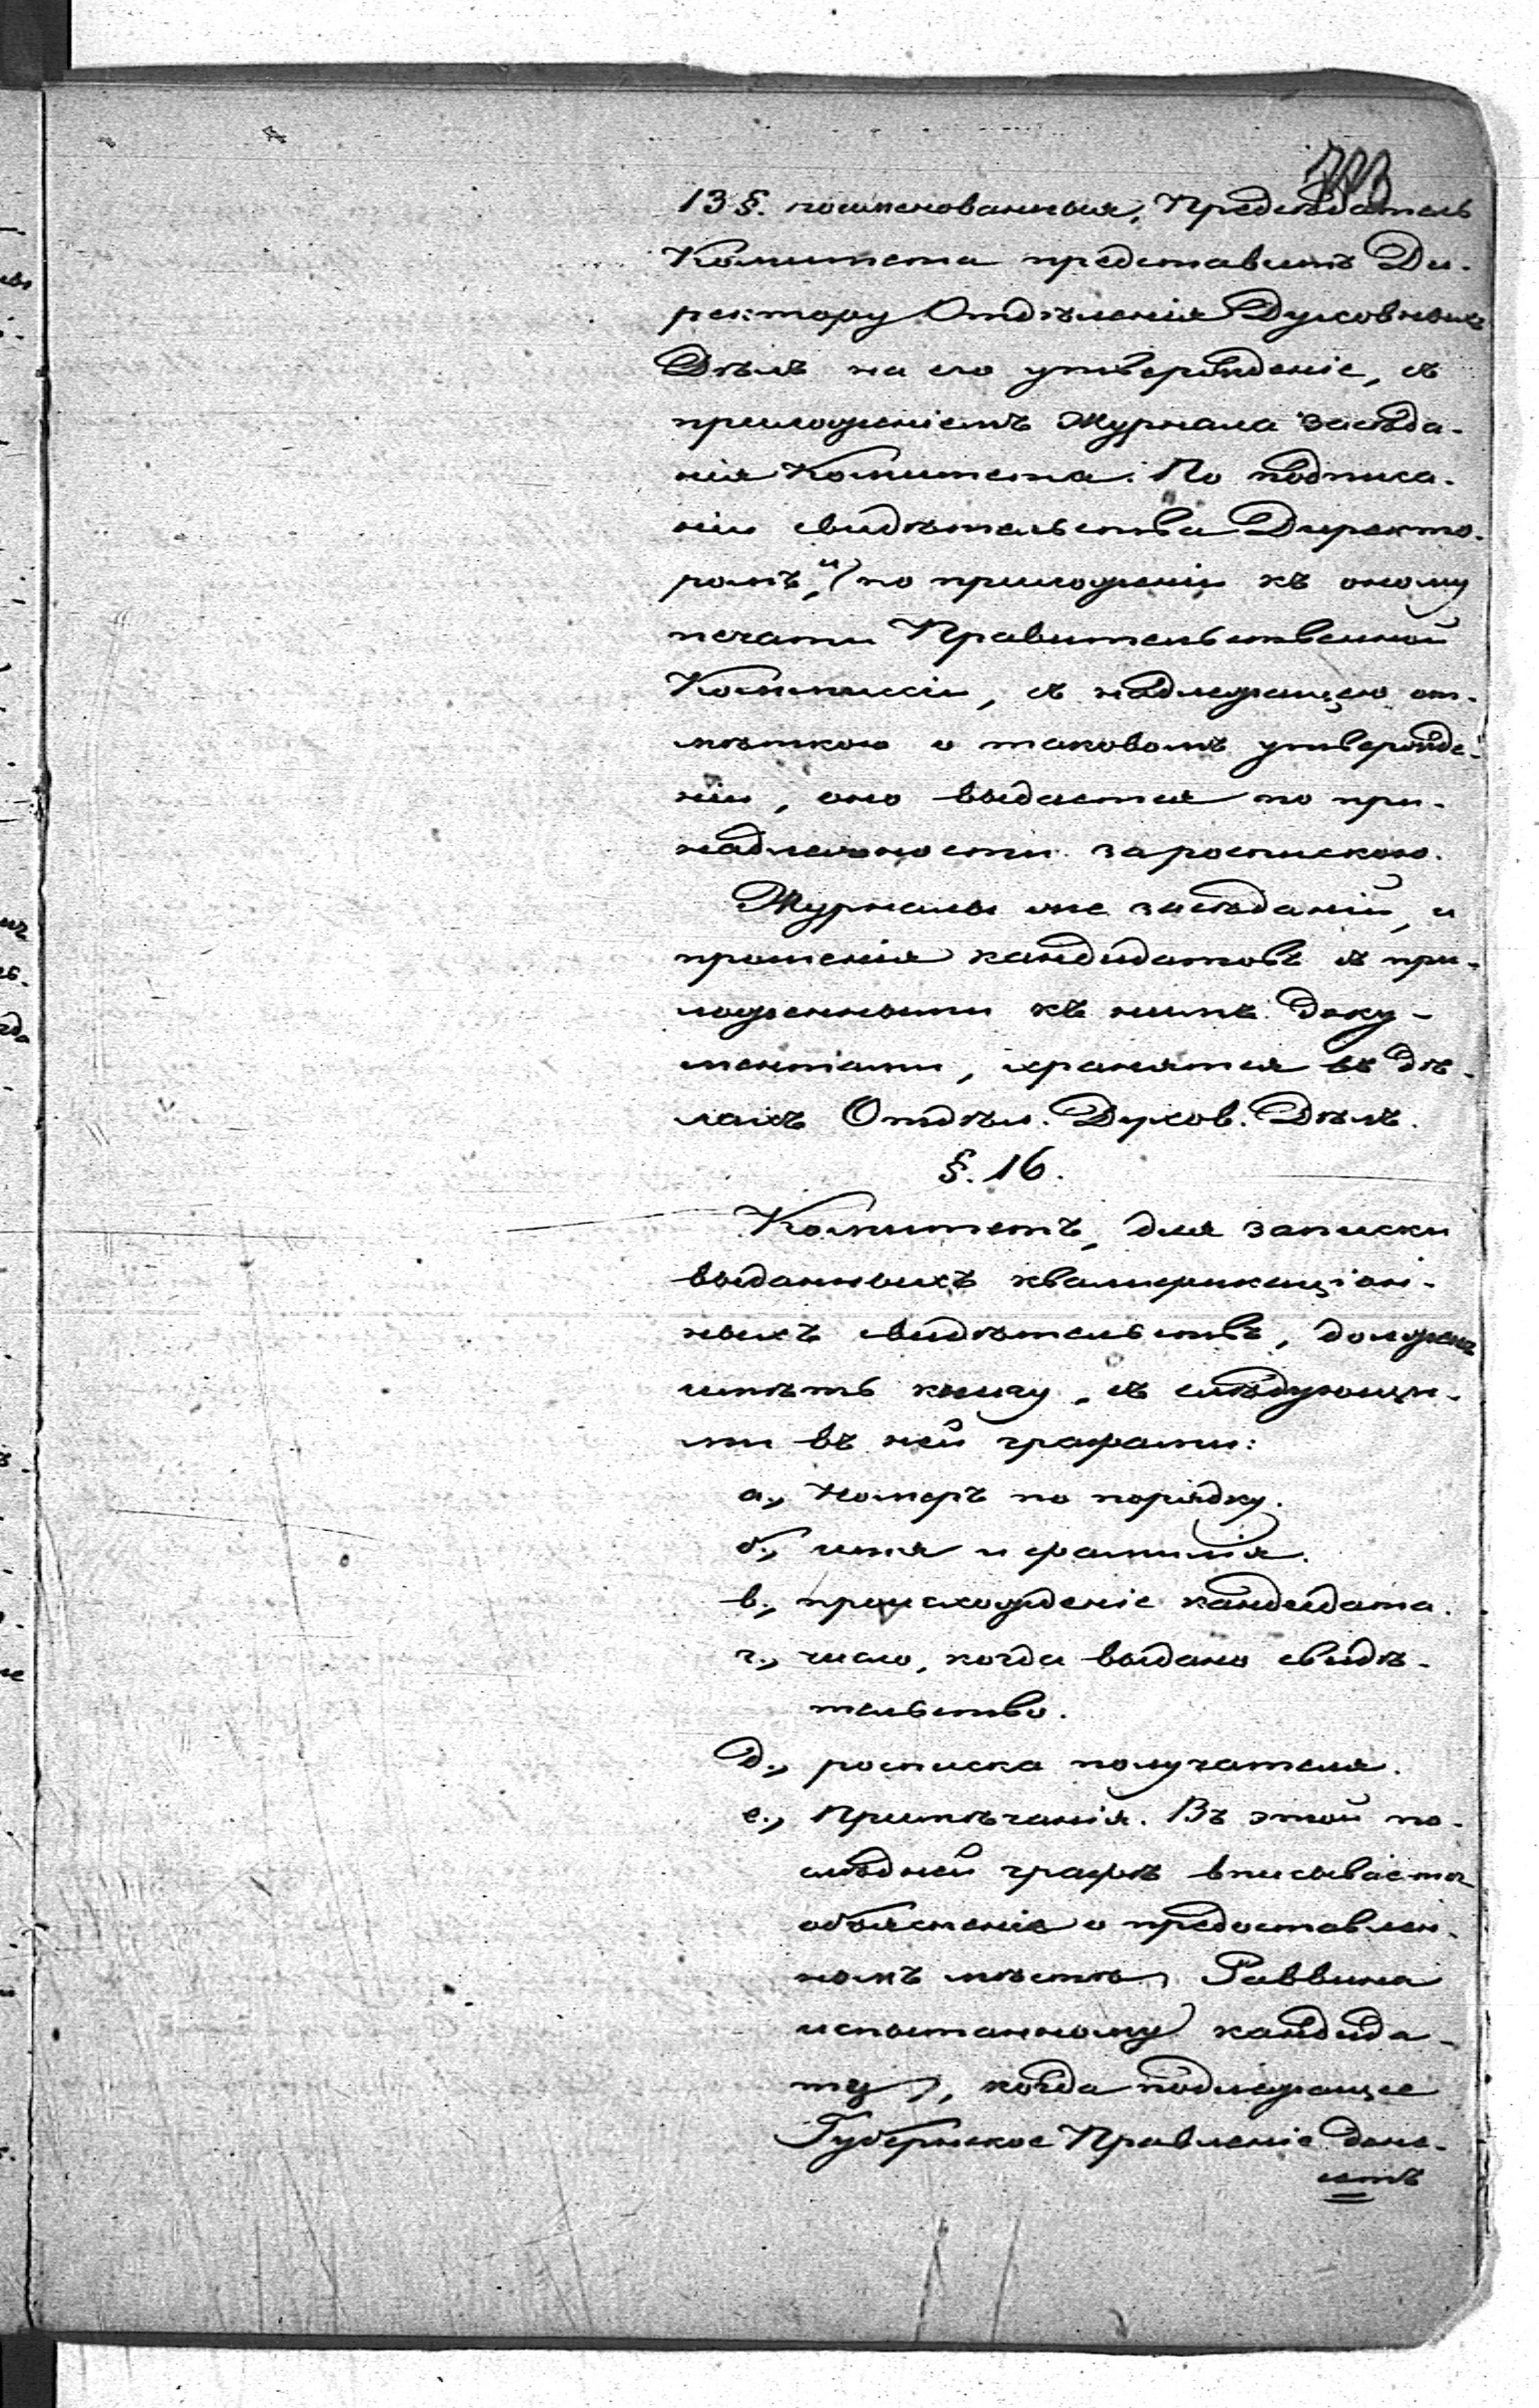 13 §. поименованныя, Предсѣдатель
Комитета представитъ Ди-
ректору Отдѣленія Духовныхъ
Дѣлъ на его утвержденіе, съ
приложеніемъ Журнала засѣда-
нія Комитета. По подписа-
ніи свидѣтельства Директо-
ромъ, и по приложеніи къ оному
печати Правительственной
Коммисіи, съ надлежащею от-
мѣткою о таковомъ утвержде-
ніи, оно выдается по при-
надлежности за роспискою.
Журналы же засѣданій, и
прошенія кандидатовъ съ при-
ложенными къ нимъ доку-
ментами, хранятся въ дѣ-
лахъ Отдѣл. Духов. Дѣлъ.
§. 16.
Комитетъ, для записки
выданныхъ квалификаціон-
ныхъ свидѣтельствъ, долженъ
имѣть книгу, съ слѣдующи-
ми въ ней графами:
а., Номеръ по порядку.
б., имя и фамилія.
в., происхожденіе кандидата.
г., число, когда выдано свидѣ-
тельство.
д., росписка получателя.
е., Примѣчанія. Въ этой по-
слѣдней графѣ вписывается
объясненіе о предоставлен-
номъ мѣстѣ Раввина
испытанному кандида-
ту, когда подлежащее
Губернское Правленіе доне-
сетъ